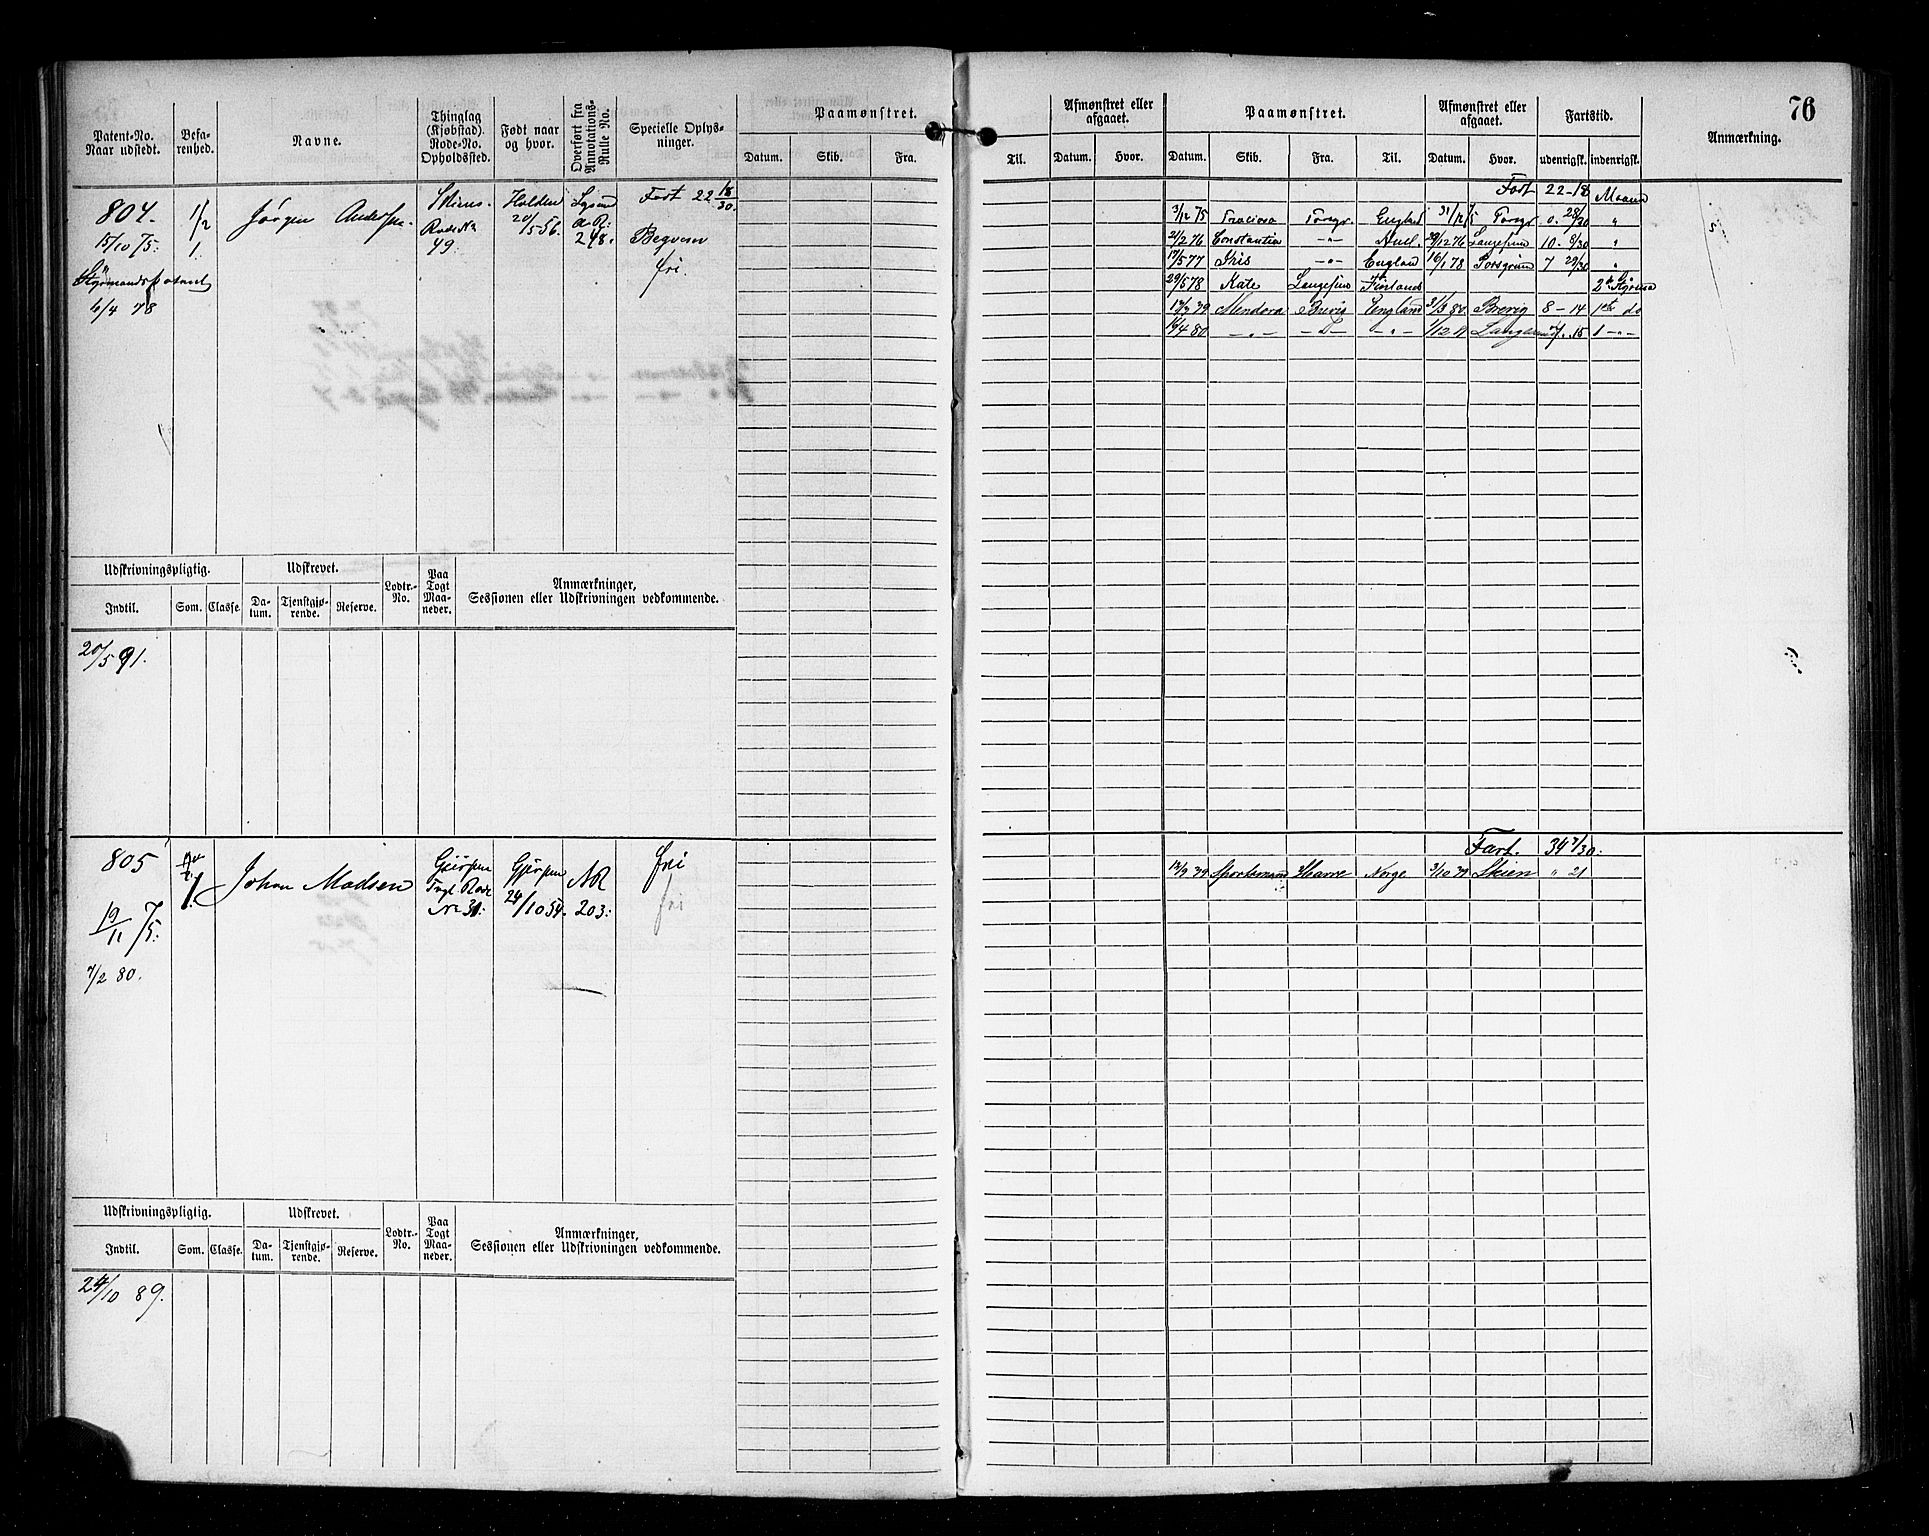 76
Patent-No. Naar udstedt.
Befa-renhed.
Navne.
Thinglag (Kjøbstad). Rode-No. Opholdssted.
Født naar og hvor.
Overført fra Annotations-Rulle No.
Specielle Oplys-ninger.
Paamønstret.
Datum. Skib. Fra.
Til.
Afmønstret eller afgaaet.
Datum. Hvor.
Paamønstret.
Datum. Skib. Fra. Til.
Afmønstret eller afgaaet.
Datum. Hvor.
Fartstid.
udenrigsk. indenrigsk.
Anmærkning.
804.
15/10 75.
Styrmandspatent
6/4 78
1/2
1.
Jørgen Andersen
Skiens
Rode No
49.
Holden
20/5 56.
A. R.
248.
Fart 22 18/30.
Begven
fri
Fart 22-18 Maaned
3/12 75 Porsgr England 31/12 75 Porsgr 0. 28/30 "
21/2 76 Constantia -"- Hull 29/12 76 Langesund 10. 8/30 "
17/5 77 Iris -"- England 16/1 78 Porsgrund 7 29/30 "
29/5 78 Kate Langesund Finland 2d Styrmd
13/3 79 Mendora Brevig England 3/3 80. Brevig 8-14 1ste do
16/4 80 -"- -D- -"- Langesund 15 1 -"-
Udskrivningspligtig. Udskrevet.
Indtil. Som. Classe. Da-tum. Tjenstgjø-rende. Reserve.
Lodtr.-No.
Paa Togt Maa-neder.
Anmærkninger,
Sessionen eller Udskrivningen vedkommende.
20/5 91.
805
19/11 75.
7/2 80.
1.
Johan Madsen
Gjerpen
Fogt. Rode
No 31.
Gjerpen
24/10 54.
AR
203.
fri
fri
Fart. 34 7/30.
12/9 79 Sportsmann Havre Norge 3/10 79 Skien " 21
Udskrivningspligtig. Udskrevet.
Indtil. Som. Classe. Da-tum. Tjenstgjø-rende. Reserve.
Lodtr.-No.
Paa Togt Maa-neder.
Anmærkninger,
Sessionen eller Udskrivningen vedkommende.
24/10 89.